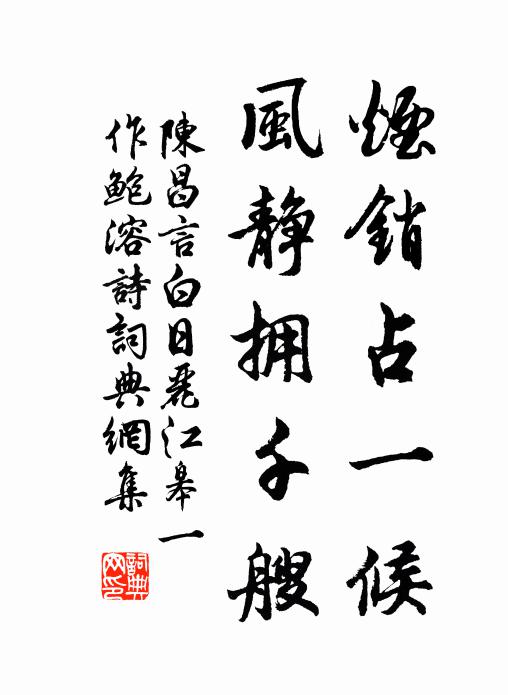 煙銷占一候
風靜拥千艘
陳昌言白日麗江皋一
作鮑溶詩詞典網集
詞典
网印